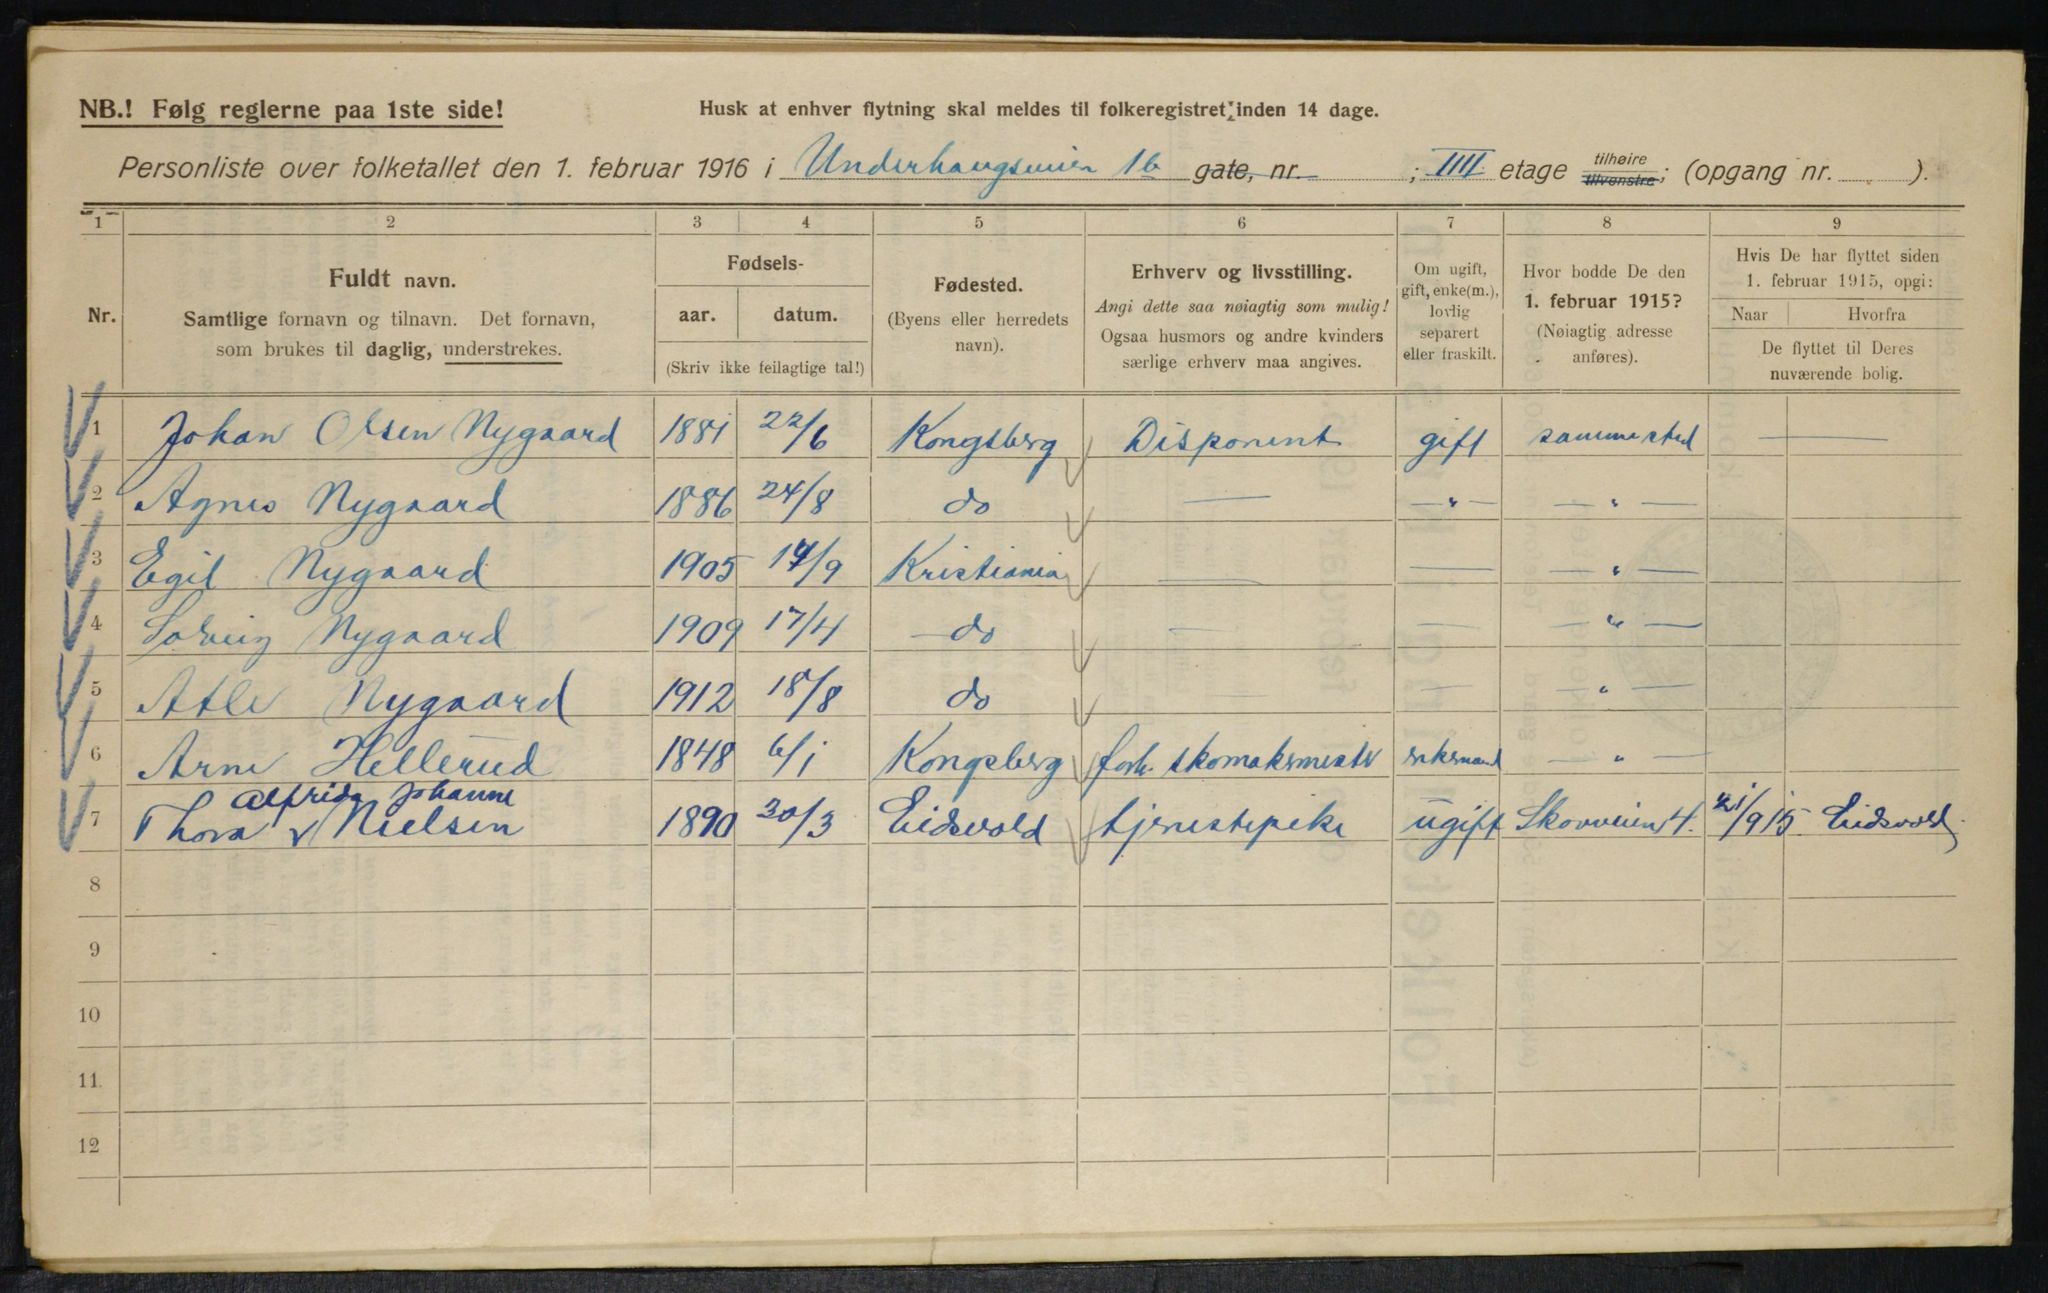 NB.! Følg reglerne paa 1ste side!
Husk at enhver flytning skal meldes til folkeregistret inden 14 dage.
Personliste over folketallet den 1. februar 1916 i Underhaugsveien 1b gate, nr. ; IIII. etage tilhøire tilvenstre; (opgang nr. ).
1 2 3 4 5 6 7 8 9
Nr.
Fuldt navn.
Samtlige fornavn og tilnavn. Det fornavn,
som brukes til daglig, understrekes.
Fødsels-
aar. datum.
(Skriv ikke feilagtige tal!)
Fødested.
(Byens eller herredets
navn).
Erhverv og livsstilling.
Angi dette saa nøiagtig som mulig!
Ogsaa husmors og andre kvinders
særlige erhverv maa angives.
Om ugift,
gift, enke(m.),
lovlig
separert
eller fraskilt.
Hvor bodde De den
1. februar 1915?
(Nøiagtig adresse
anføres).
Hvis De har flyttet siden
1. februar 1915, opgi:
Naar Hvorfra
De flyttet til Deres
nuværende bolig.
1 Johan Olsen Nygaard 1881 22/6 Kongsberg Disponent gift sammested —
2 Agnes Nygaard 1886 24/8 do — — " — — " —
3 Egil Nygaard 1905 14/9 Kristiania — — — " —
4 Solveig Nygaard 1909 17/4 do — — — " —
5 Atle Nygaard 1912 18/8 do — — — " —
6 Arne Hellerud 1848 6/1 Kongsberg forh. skomakermester enkemand — " —
Alfrida Johanne
7 Thora v Nielsen 1890 30/3 Eidsvold tjenestepike ugift Skovveien 4. 21/9 15 Eidsvold
8
9
10
11
12